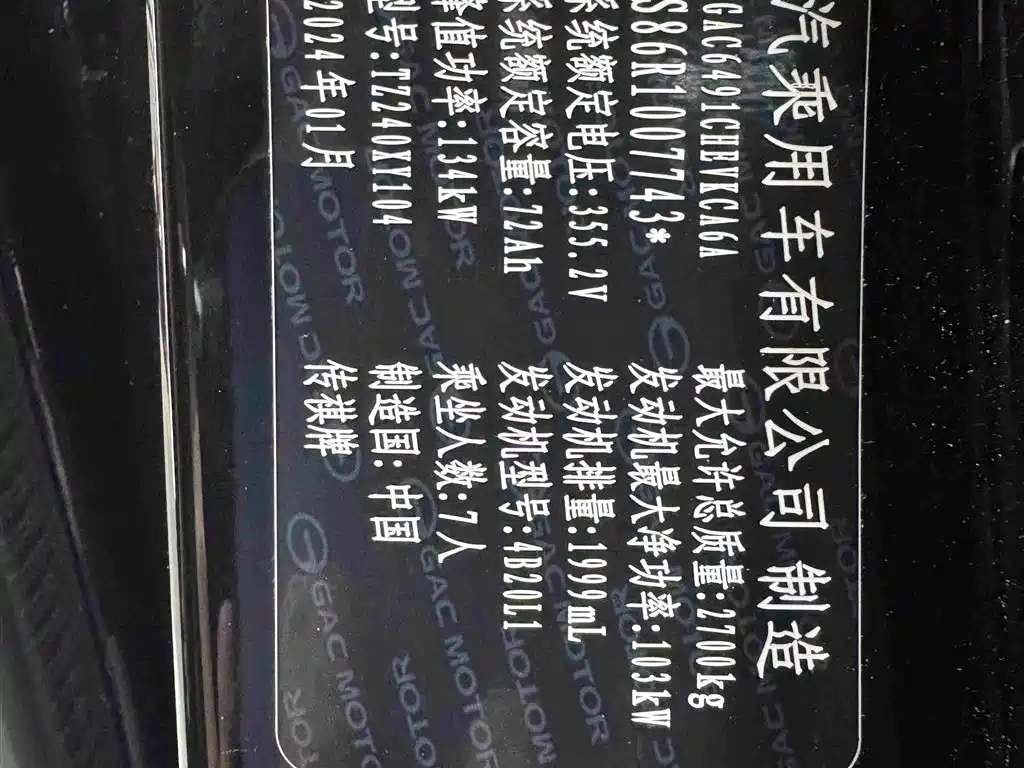 汽乘用车有限公司 制造
GAC6491CHEVKCA6A 最大允许总质量:2700kg
S86R100743* 发动机最大净功率:103kW
系统额定电压:355.2V 发动机排量:1999mL
系统额定容量:22Ah 发动机型号:4B20J1
峰值功率:134kW 乘坐人数:7人
型号:TZ240XY104 制造国:中国
2024年01月 传祺牌
GAC MOTOR